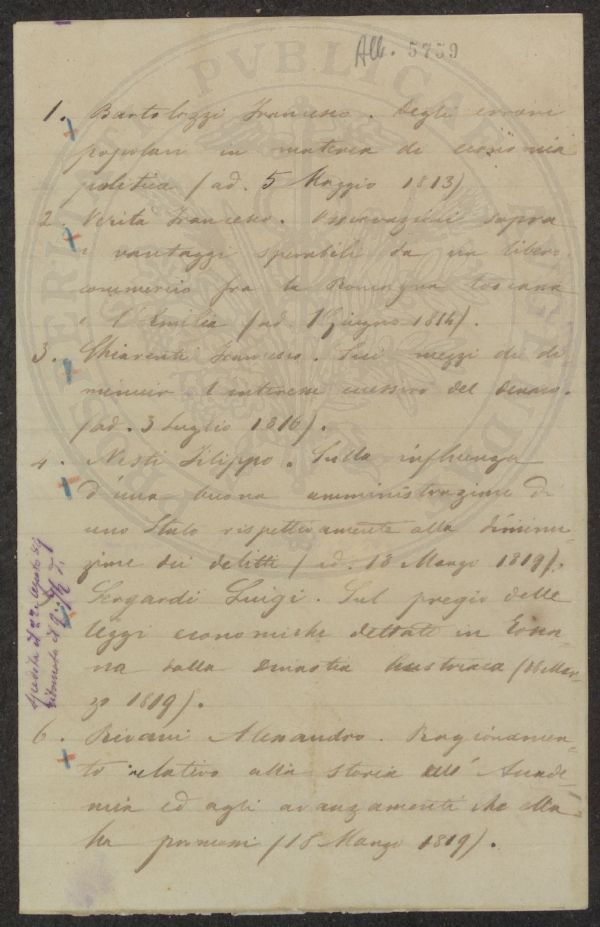 All. 5759
1. Bartolozzi Francesco. Degli errori
popolari in materia di economia
politica (ad. 5 Maggio 1813)
2. Verità Francesco. Osservazioni sopra
i vantaggi sperabili da un libero
commercio fra la Romagna toscana
e l'Emilia (ad. 1 Giugno 1814).
3. Chiarenti Francesco. Sui mezzi di di-
minuire l'interesse eccessivo del denaro.
(ad. 3 Luglio 1816).
4. Nesti Filippo. Sulla influenza
d'una buona amministrazione di
uno Stato rispettivamente alla diminu-
zione dei delitti (ad. 18 Marzo 1819).
Sergardi Luigi. Sul pregio delle
leggi economiche dettate in Tosca-
na dalla Dinastia Austriaca (18 Mar-
zo 1819).
6. Rivani Alessandro. Ragionamen-
to relativo alla storia dell'Accade-
mia ed agli avanzamenti che ella
ha promossi (18 Marzo 1819).
spedita il 22 Agosto
ritornata il